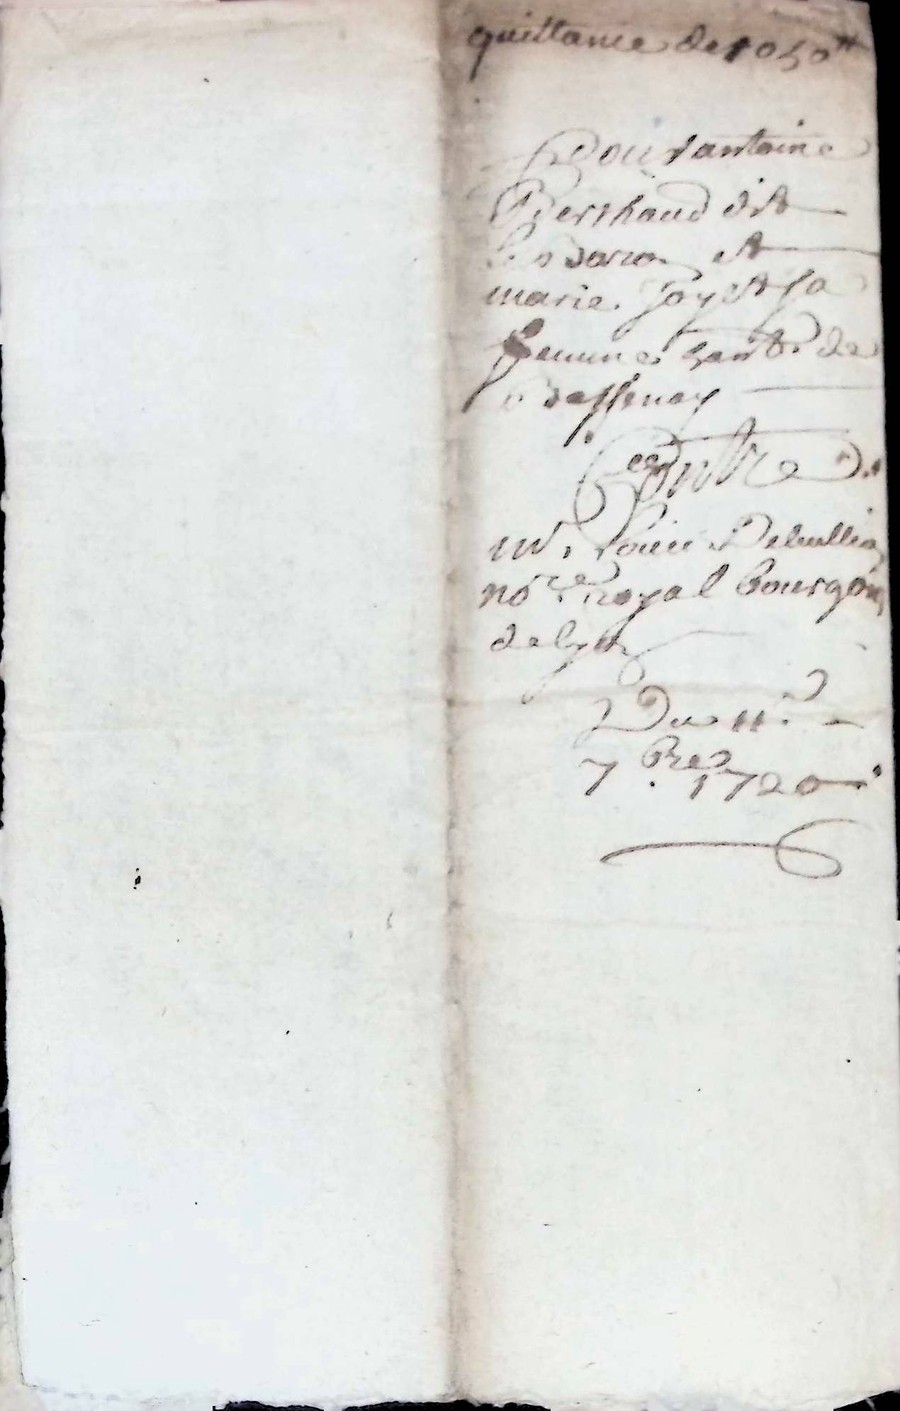 quittance de 1050 ₶
Pour antoine
Berthaud dit
et
marie Joyet sa
femme de
Contre
mr. Louis Debullia
nore. royal Bourgois
de lyon
Du 11e.
7bre. 1720